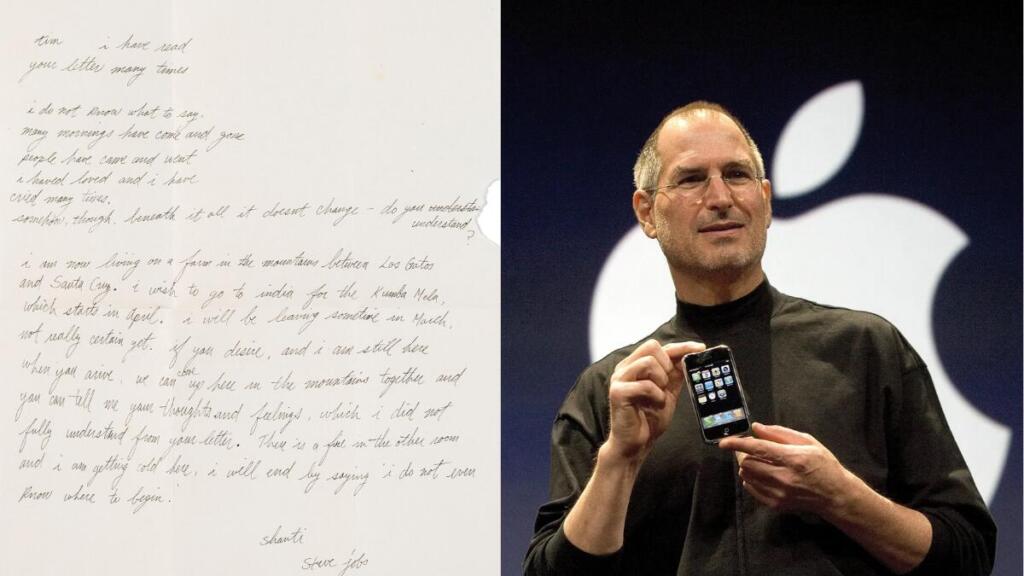 tim i have read
your letter many times
i do not know what to say.
many mornings have come and gone
people have came and went
i haved loved and i have
cried many times.
somehow, though, beneath it all it doesnt change - do you understa
understand?
i am now living on a farm in the mountains between Los Gatos
and Santa Cruz. i wish to go to india for the Kumba Mela,
which starts in April. i will be leaving sometime in March,
not really certain yet. if you desire, and i am still here
when you arive, we can live up here in the mountains together and
you can tell me your thoughts and feelings, which i did not
fully understand from your letter. There is a fire in the other room
and i am getting cold here, i will end by saying 'i do not even
know where to begin.'
shanti
steve jobs